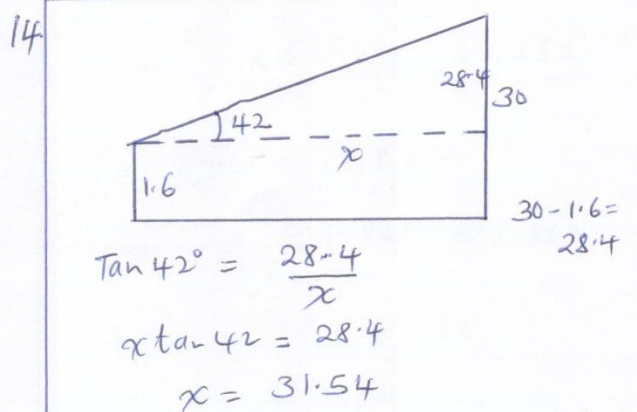 14
28.4
30
42
x
1.6
30-1.6=
28.4
Tan 42° = 28.4/x
x tan 42 = 28.4
x = 31.54